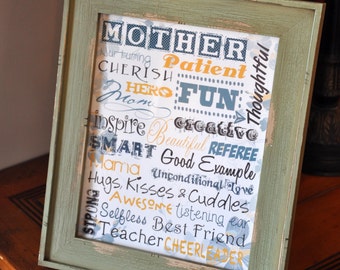 MOTHER
Nurturing
Patient
CHERISH
Thoughtful
HERO
FUN
Mom
creative
inspire
Beautiful
REFEREE
SMART
Good Example
Mama
Unconditional Love
Hugs, Kisses & Cuddles
STRONG
Awesome
listening ear
Selfless
Best Friend
Teacher
CHEERLEADER